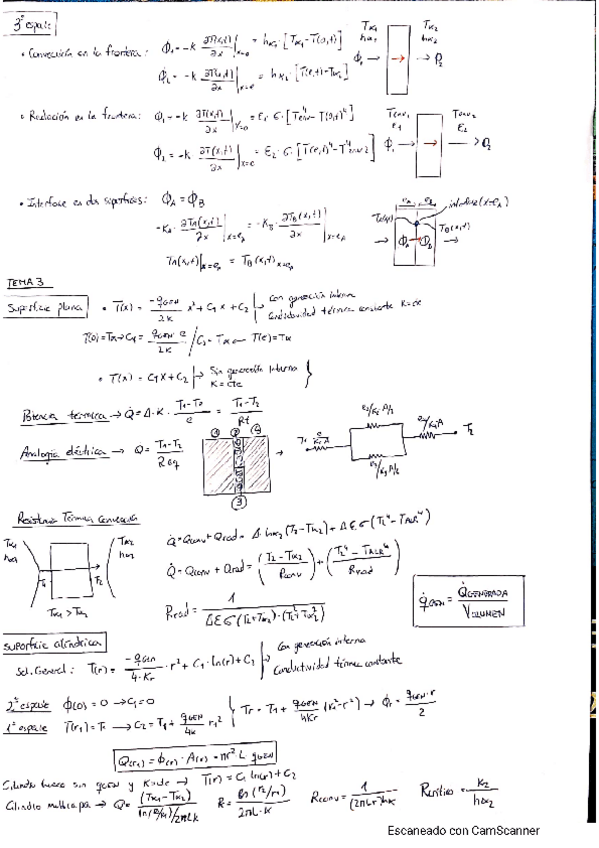 3ª especie
• Convección en la frontera: ϕ₁ = -k ∂T(x,t)/∂x |x=0 = h∞₁ · [T∞₁ - T(0,t)]
T∞₁ h∞₁ T∞₂ h∞₂
ϕ₂ = -k ∂T(x,t)/∂x |x=e = h∞₂ · [T(e,t) - T∞₂]
ϕ₁ → → ϕ₂
• Radiación en la frontera: ϕ₁ = -k ∂T(x,t)/∂x |x=0 = ε₁ · σ · [T⁴env - T(0,t)⁴]
ϕ₂ = -k ∂T(x,t)/∂x |x=e = ε₂ · σ · [T(e,t)⁴ - T⁴env2]
ϕ₁ → → ϕ₂
• Interfase en dos superficies: ϕA = ϕB
-KA · ∂TA(x,t)/∂x |x=eA = -KB · ∂TB(x,t)/∂x |x=eA
TA(x,t)|x=eA = TB(x,t)x=eA
interfase (x=eA)
TB(x,t)
ϕA ϕB
TEMA 3
Superficie plana
• T(x) = -qGEN/2K x² + C₁ x + C₂
con generación interna
Conductividad térmica constante K=cte
T(0) = T∞ → C₁ = qGEN e/2K / C₂ = T∞ ← T(e) = T∞
• T(x) = C₁ x + C₂
Sin generación interna
K = cte
Potencia térmica → Q̇ = A · K · T₁-T₂/e = T₁-T₂/Rt
Analogía eléctrica → Q = T₁-T₂/Req
① ② ④
③
T₁ T₂
Resistencia Térmica Convección
T∞₁ h∞₁ T∞₂ h∞₂
T₁ T₂
T∞₁ > T∞₂
Q̇ = Qconv + Qrad = A · h∞₂ (T₂ - T∞₂) + A E σ (T₂⁴ - TALR⁴)
Q̇ = Q̇conv + Q̇rad = (T₂ - T∞₂/Rconv) + (T₂⁴ - TALR⁴/Rrad)
Rrad = 1/AEσ(T₂+T∞₂)·(T₂²+T∞₂²)
q̇GEN = Q̇GENERADA/VOLUMEN
Superficie cilíndrica
Sol. General: T(r) = -qGEN/4·Kr · r² + C₁ · ln(r) + C₂
Con generación interna
Conductividad térmica constante
2ª especie ϕ(0) = 0 → C₁ = 0
1ª especie T(r₁) = T₁ → C₂ = T₁ + qGEN/4K r₁²
Tr = T₁ + qGEN/4Kr (r₁² - r²) → ϕr = qGEN·r/2
Q(r) = ϕ(r) · A(r) = πr² L qGEN
Cilindro hueco sin qGEN y K=cte → T(r) = C₁ ln(r) + C₂
Cilindro multicapa → Q = (T∞₁ - T∞₂)/ln(r₂/r₁)/2πLK
R = ln(r₂/r₁)/2πL·K
Rconv = 1/(2πLr)h∞
Rcrítico = K₂/h∞₂
Escaneado con CamScanner